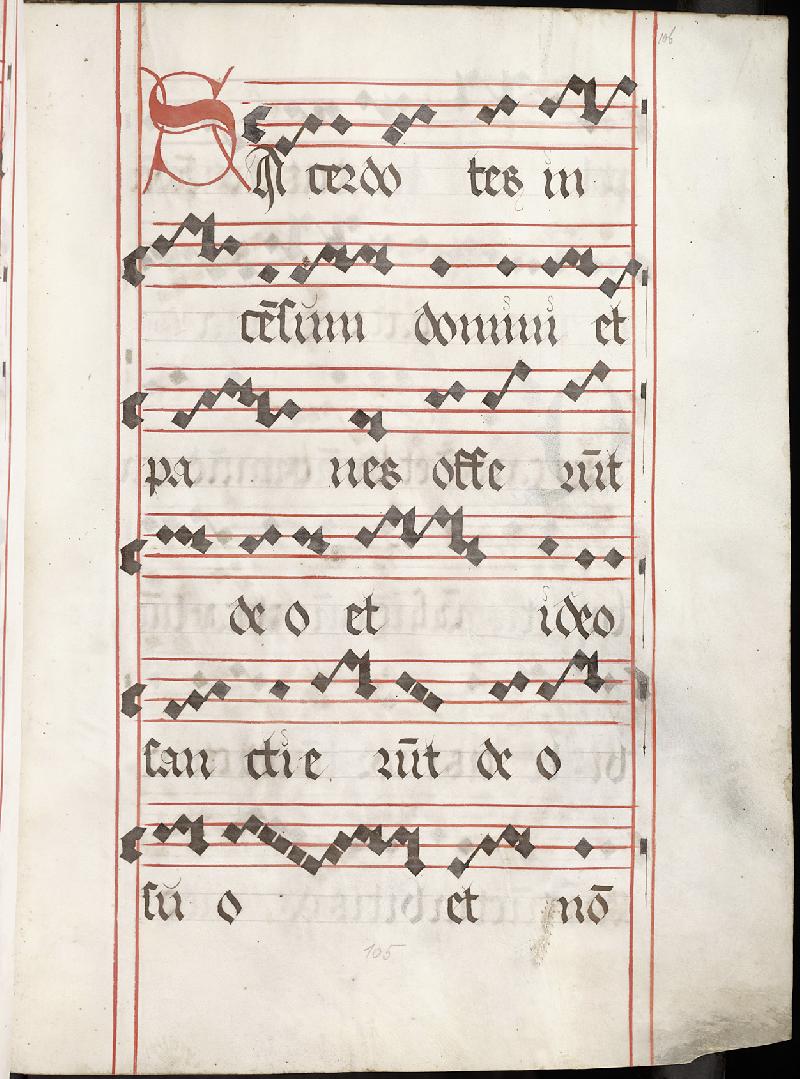 106
SA cerdo tes in
cēsum domini et
pa nes offe rūt
de o et ideo
san ctie rūt de o
su o et nō
105